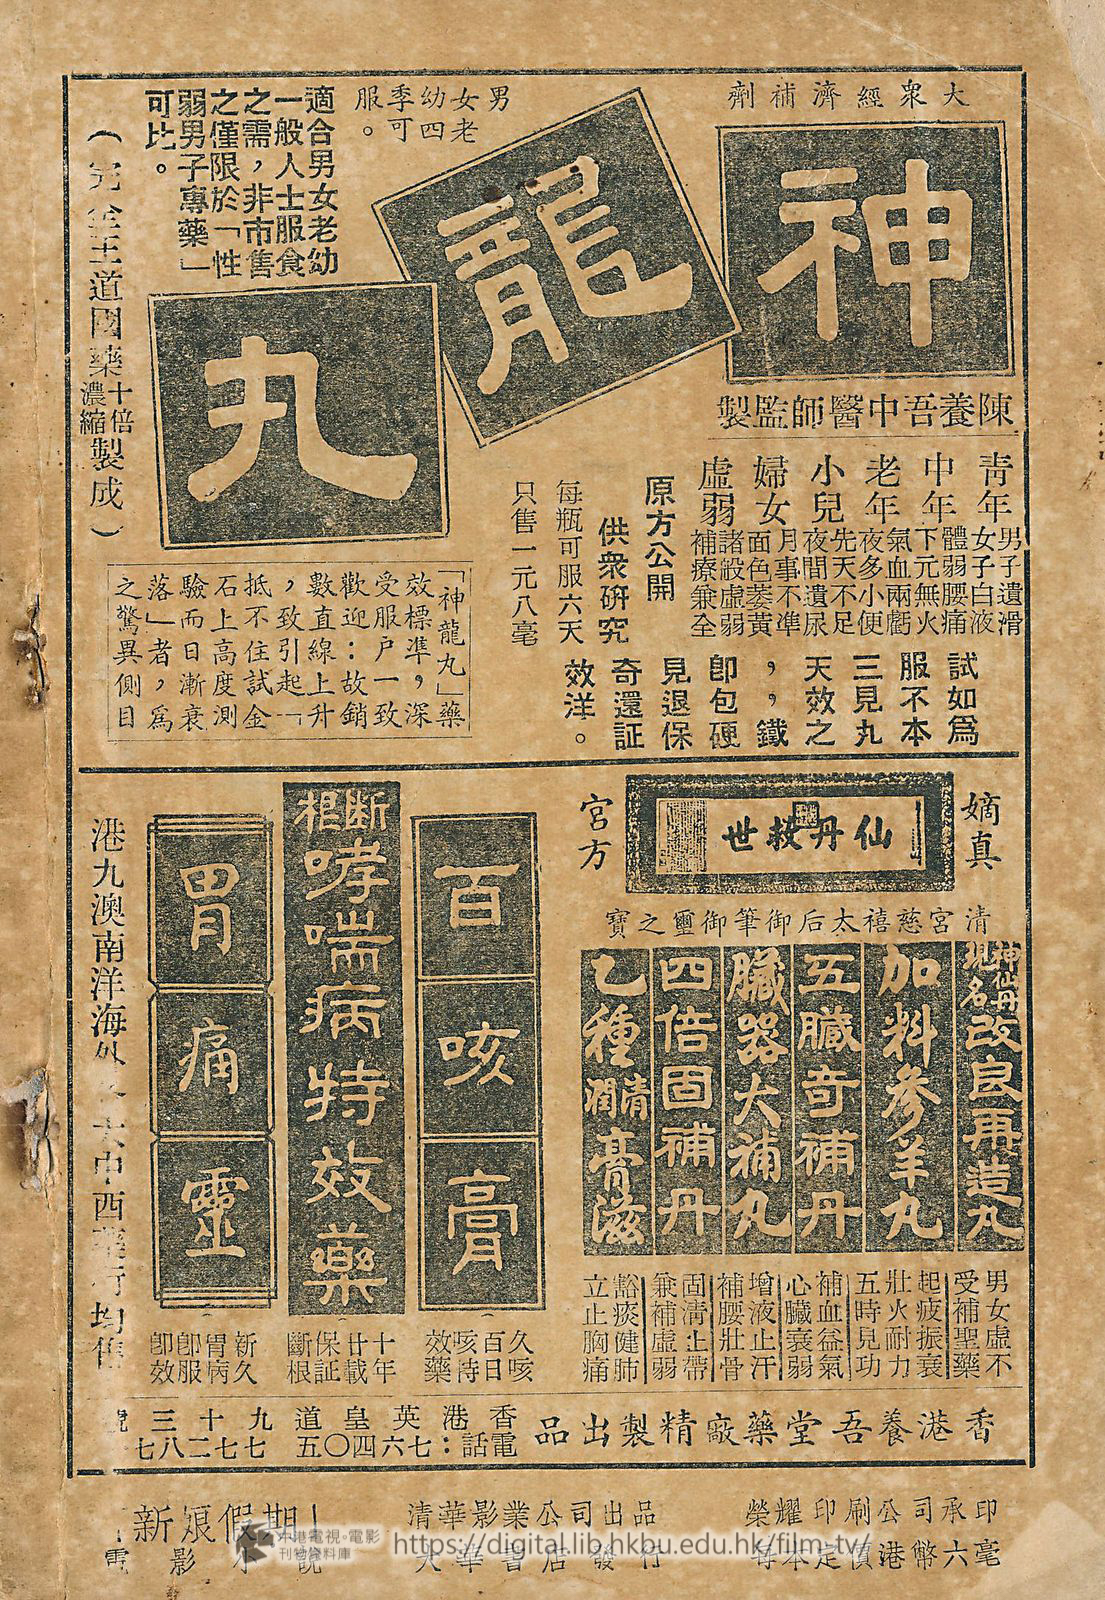 大衆經濟補劑
神龍丸
男女老
幼四
季可
服。
適合男女老幼
一般人士服食
之需，非市售
之僅限於「性
弱男子專藥」
可比。
（完全王道國藥十倍濃縮製成）
陳養吾中醫師監製
青年 男子遺滑 女子白液
中年 體弱腰痛 下元無火
老年 氣血兩虧 夜多小便
小兒 先天不足 夜間遺尿
婦女 月事不準 面色萎黃
虛弱 諸般虛弱 補療兼全
原方公開
供衆研究
每瓶可服六天
只售一元八毫
試服三天，即見奇效
如不見效，包退還洋。
爲本丸之鐵硬保証
「神龍丸」藥
效標準，深
受服户一致
歡迎：故銷
數直線上升
，致引起「
抵不住試金
石上高度測
驗而日漸衰
落」者，爲
之驚異側目
嫡真
宮方
仙丹救世
清宮慈禧太后御筆御璽之寶
神仙丹現名改良再造丸
加料參羊丸
五臟奇補丹
臟器大補丸
四倍固補丹
乙種清潤膏滋
男女虛不
受補聖藥
起疲振衰
壯火耐力
五時見功
補血益氣
心臟衰弱
增液止汗
補腰壯骨
固清止帶
兼補虛弱
豁痰健肺
立止胸痛
百咳膏
久咳
百日
咳特
效藥
斷根哮喘病特效藥
十年
廿載
保証
斷根
胃痛靈
新久
胃病
即服
即效
港九澳南洋海外
中西藥行均售
香港養吾堂藥廠精製出品
香港英皇道九十三號
電話：七六四〇五 七七二八七
榮耀印刷公司承印
每本定價港幣六毫
清華影業公司出品
大華書店發行
新娘假期
電影小說
中港電視·電影
刊物資料庫
https://digital.lib.hkbu.edu.hk/film-tv/